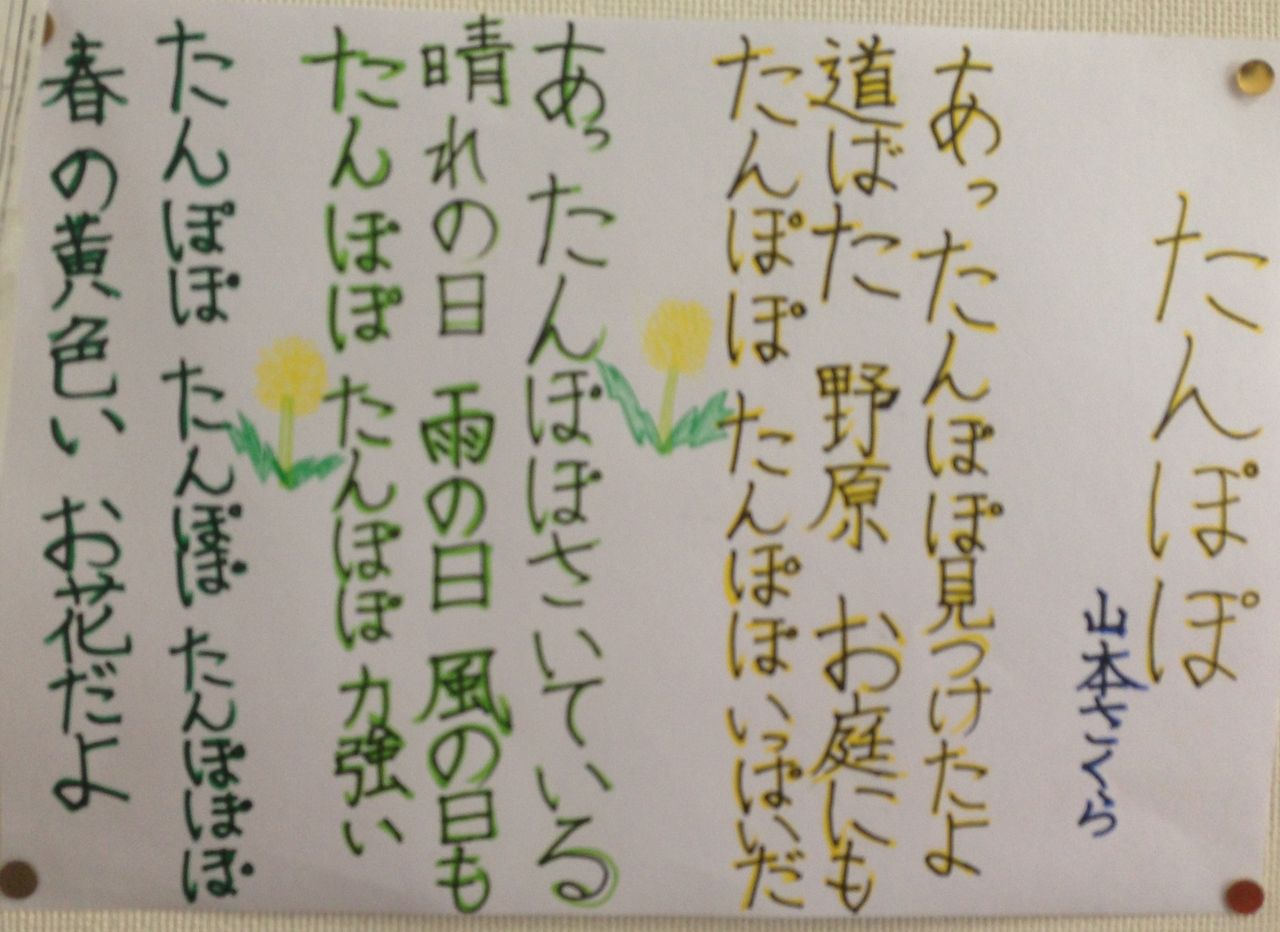 たんぽぽ
山本さくら
あっ たんぽぽ見つけたよ
道ばた 野原 お庭にも
たんぽぽ たんぽぽ いっぱいだ
あっ たんぽぽさいている
晴れの日 雨の日 風の日も
たんぽぽ たんぽぽ 力強い
たんぽぽ たんぽぽ たんぽぽぽ
春の黄色い お花だよ